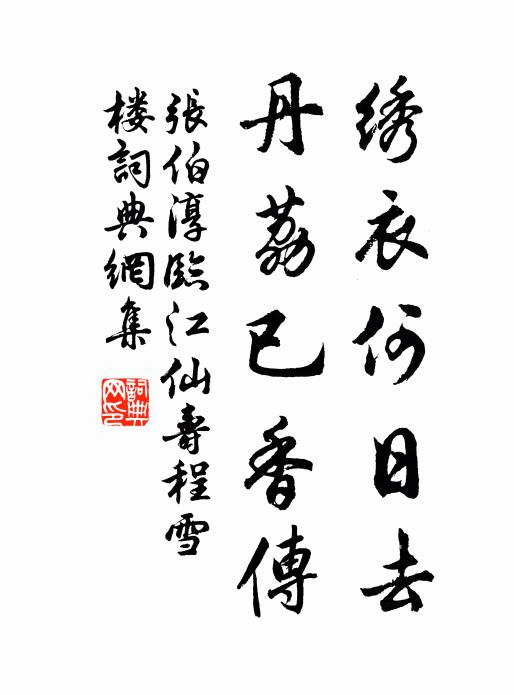 绣衣何日去
丹荔已香傳
張伯淳臨江仙壽程雪
楼詞典網集
詞典网印